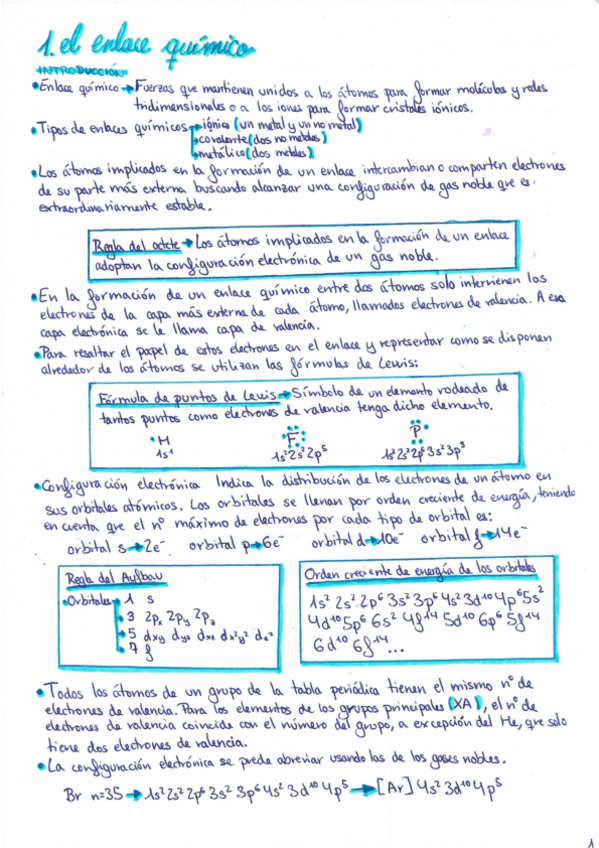 1. el enlace químico
INTRODUCCIÓN
•Enlace químico→Fuerzas que mantienen unidos a los átomos para formar moléculas y redes
tridimensionales o a los iones para formar cristales iónicos.
•Tipos de enlaces químicos→iónico (un metal y un no metal)
→covalente (dos no metales)
→metálico (dos metales)
•Los átomos implicados en la formación de un enlace intercambian o comparten electrones
de su parte más externa buscando alcanzar una configuración de gas noble que es
extraordinariamente estable.
Regla del octete→Los átomos implicados en la formación de un enlace
adoptan la configuración electrónica de un gas noble.
•En la formación de un enlace químico entre dos átomos solo intervienen los
electrones de la capa más externa de cada átomo, llamados electrones de valencia. A esa
capa electrónica se le llama capa de valencia.
•Para resaltar el papel de estos electrones en el enlace y representar como se disponen
alrededor de los átomos se utilizan las fórmulas de Lewis:
Fórmula de puntos de Lewis→Símbolo de un elemento rodeado de
tantos puntos como electrones de valencia tenga dicho elemento.
H F P
1s¹ 1s²2s²2p⁵ 1s²2s²2p⁶3s²3p³
•Configuración electrónica Indica la distribución de los electrones de un átomo en
sus orbitales atómicos. Los orbitales se llenan por orden creciente de energía, teniendo
en cuenta que el nº máximo de electrones por cada tipo de orbital es:
orbital s→2e⁻ orbital p→6e⁻ orbital d→10e⁻ orbital f→14e⁻
Regla del Aufbau
•Orbitales→1 s
→3 2px 2py 2pz
→5 dxy dyz dxz dx²y² dz²
→7 f
Orden creciente de energía de los orbitales
1s² 2s² 2p⁶ 3s² 3p⁶ 4s² 3d¹⁰ 4p⁶ 5s²
4d¹⁰ 5p⁶ 6s² 4f¹⁴ 5d¹⁰ 6p⁶ 5f¹⁴
6d¹⁰ 6f¹⁴...
•Todos los átomos de un grupo de la tabla periódica tienen el mismo nº de
electrones de valencia. Para los elementos de los grupos principales (XA), el nº de
electrones de valencia coincide con el número del grupo, a excepción del He, que solo
tiene dos electrones de valencia.
•La configuración electrónica se puede abreviar usando las de los gases nobles.
Br n=35→1s² 2s² 2p⁶ 3s² 3p⁶ 4s² 3d¹⁰ 4p⁵→[Ar] 4s² 3d¹⁰ 4p⁵
1